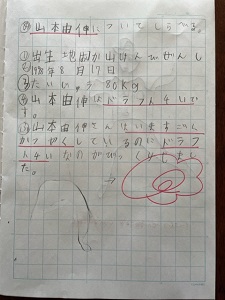 山本由伸についてしらべる。
①出生地岡山けんびぜんし
②1998年8月17日
③たいじゅう80Kg
④山本由伸はドラフト4いで
す。
山本由伸さんはいますごく
かつやくしているのにドラフ
ト4いなのがびっくりしまし
た。